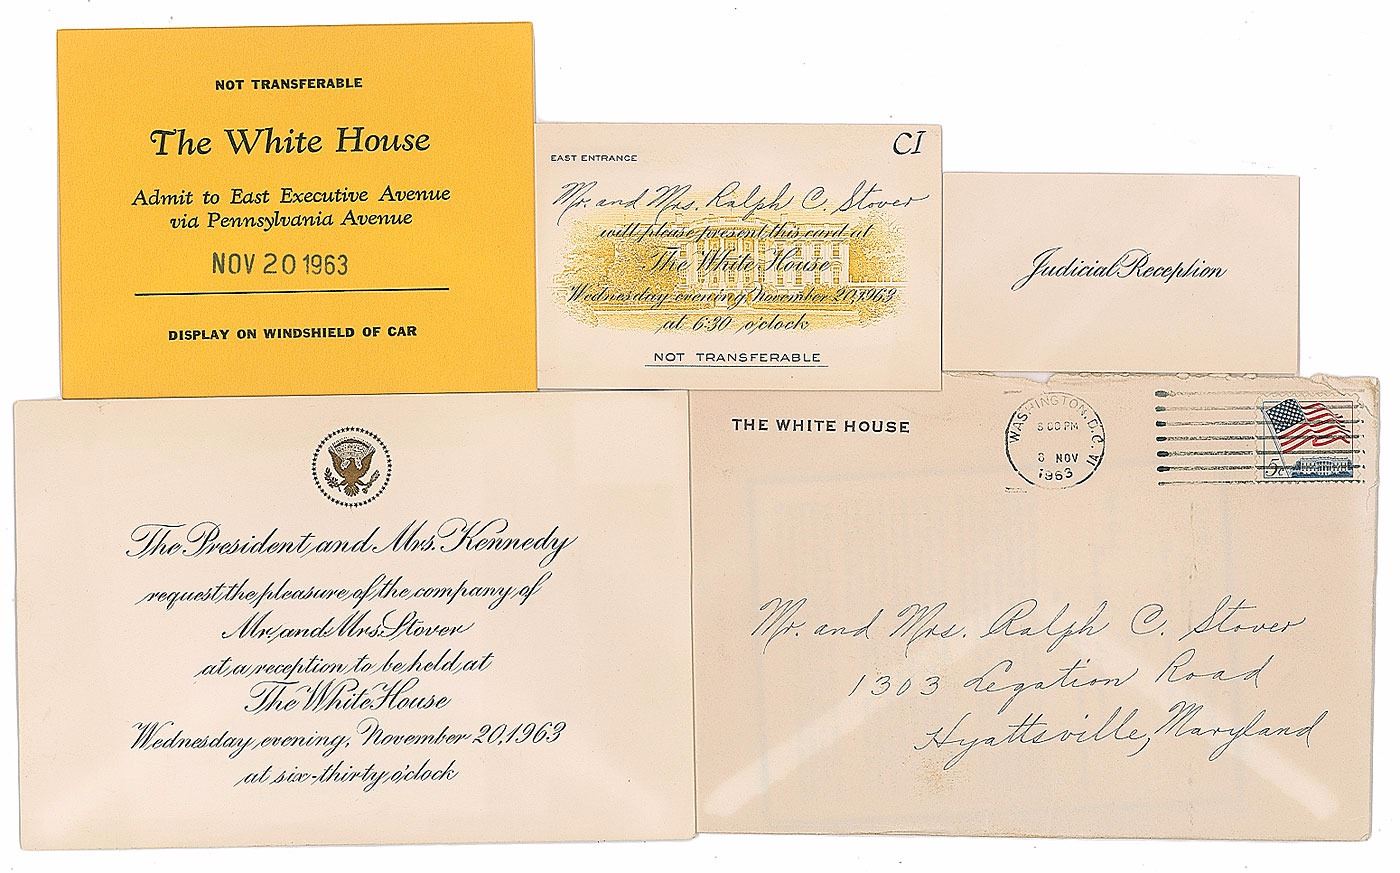 NOT TRANSFERABLE
The White House
Admit to East Executive Avenue
via Pennsylvania Avenue
NOV 20 1963
DISPLAY ON WINDSHIELD OF CAR
CI
EAST ENTRANCE
Mr. and Mrs. Ralph C. Stover
will please present this card at
The White House
Wednesday evening, November 20, 1963
at 6:30 o'clock
NOT TRANSFERABLE
Judicial Reception
The President and Mrs. Kennedy
request the pleasure of the company of
Mr. and Mrs. Stover
at a reception to be held at
The White House
Wednesday evening, November 20, 1963
at six-thirty o'clock
THE WHITE HOUSE
WASHINGTON, D.C.
PM
8 NOV
1963
5c
Mr. and Mrs. Ralph C. Stover
1303 Legation Road
Hyattsville, Maryland